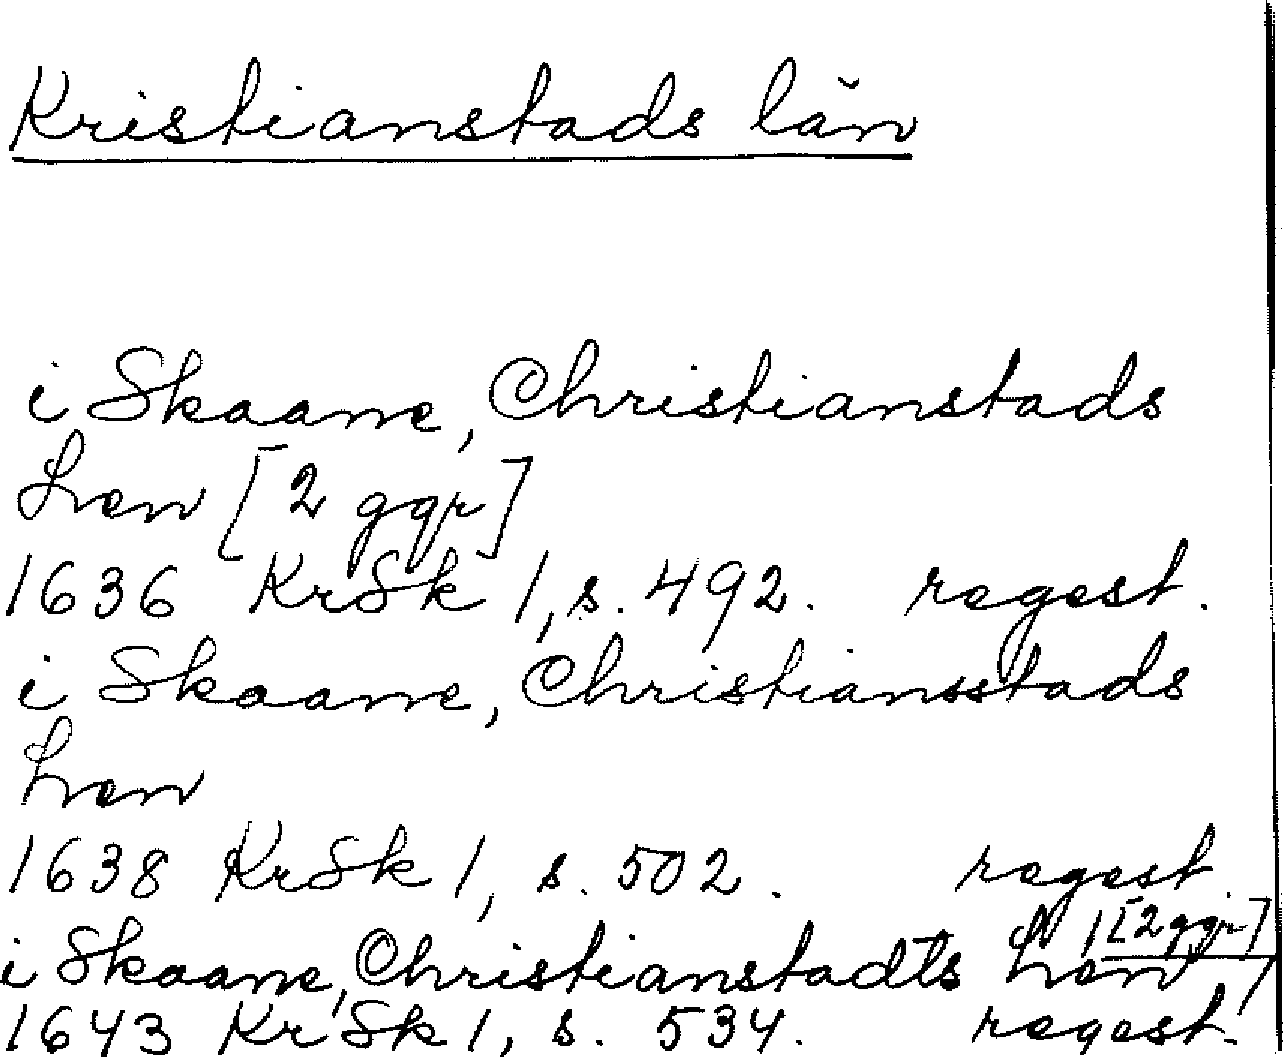 Kristianstads län
i Skaane, Christianstads
Len [2 ggr]
1636 KrSk 1, s. 492. regest.
i Skaane, Christiansstads
Len
1638 KrSk 1, s. 502. regest.
i Skaane, Christianstadts Len [2 ggr]
1643 KrSk 1, s. 534. regest.